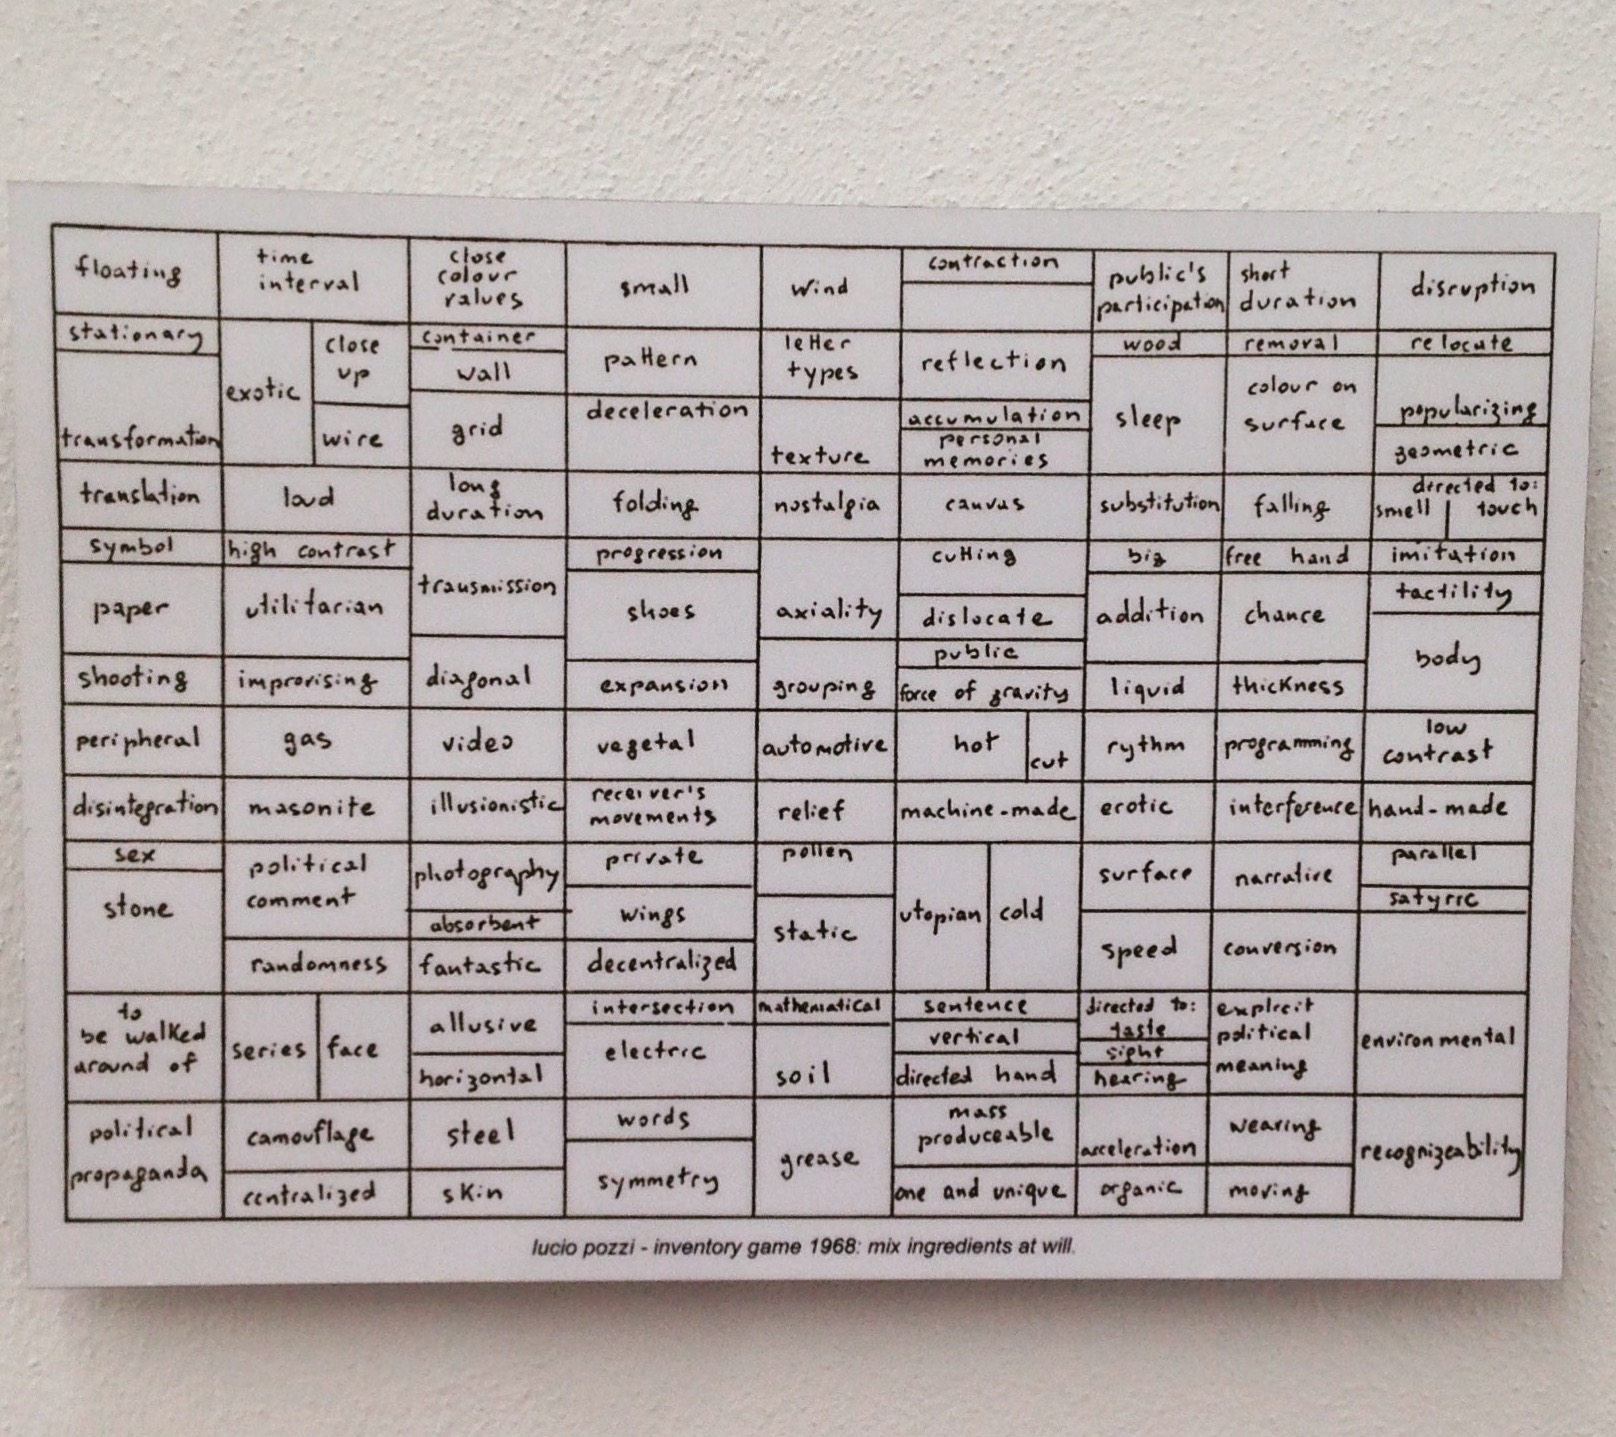 floating
time
interval
close
colour
values
small
wind
contraction
public's
participation
short
duration
disruption
stationary
transformation
exotic
close
up
wire
container
wall
grid
pattern
deceleration
letter
types
texture
reflection
accumulation
personal
memories
wood
sleep
removal
colour on
surface
relocate
popularizing
geometric
translation
loud
long
duration
folding
nostalgia
canvas
substitution
falling
directed to:
smell
touch
symbol
paper
high contrast
utilitarian
transmission
progression
shoes
axiality
cutting
dislocate
big
addition
free hand
chance
imitation
tactility
body
shooting
improvising
diagonal
expansion
grouping
public
force of gravity
liquid
thickness
peripheral
gas
video
vegetal
automotive
hot
cut
rythm
programming
low
contrast
disintegration
masonite
illusionistic
receiver's
movements
relief
machine-made
erotic
interference
hand-made
sex
stone
political
comment
randomness
photography
absorbent
fantastic
private
wings
decentralized
pollen
static
utopian
cold
surface
speed
narrative
conversion
parallel
satyric
to
be walked
around of
series
face
allusive
horizontal
intersection
electric
mathematical
soil
sentence
vertical
directed hand
directed to:
taste
sight
hearing
explicit
political
meaning
environmental
political
propaganda
camouflage
centralized
steel
skin
words
symmetry
grease
mass
produceable
one and unique
acceleration
organic
wearing
moving
recognizeability
lucio pozzi - inventory game 1968: mix ingredients at will.